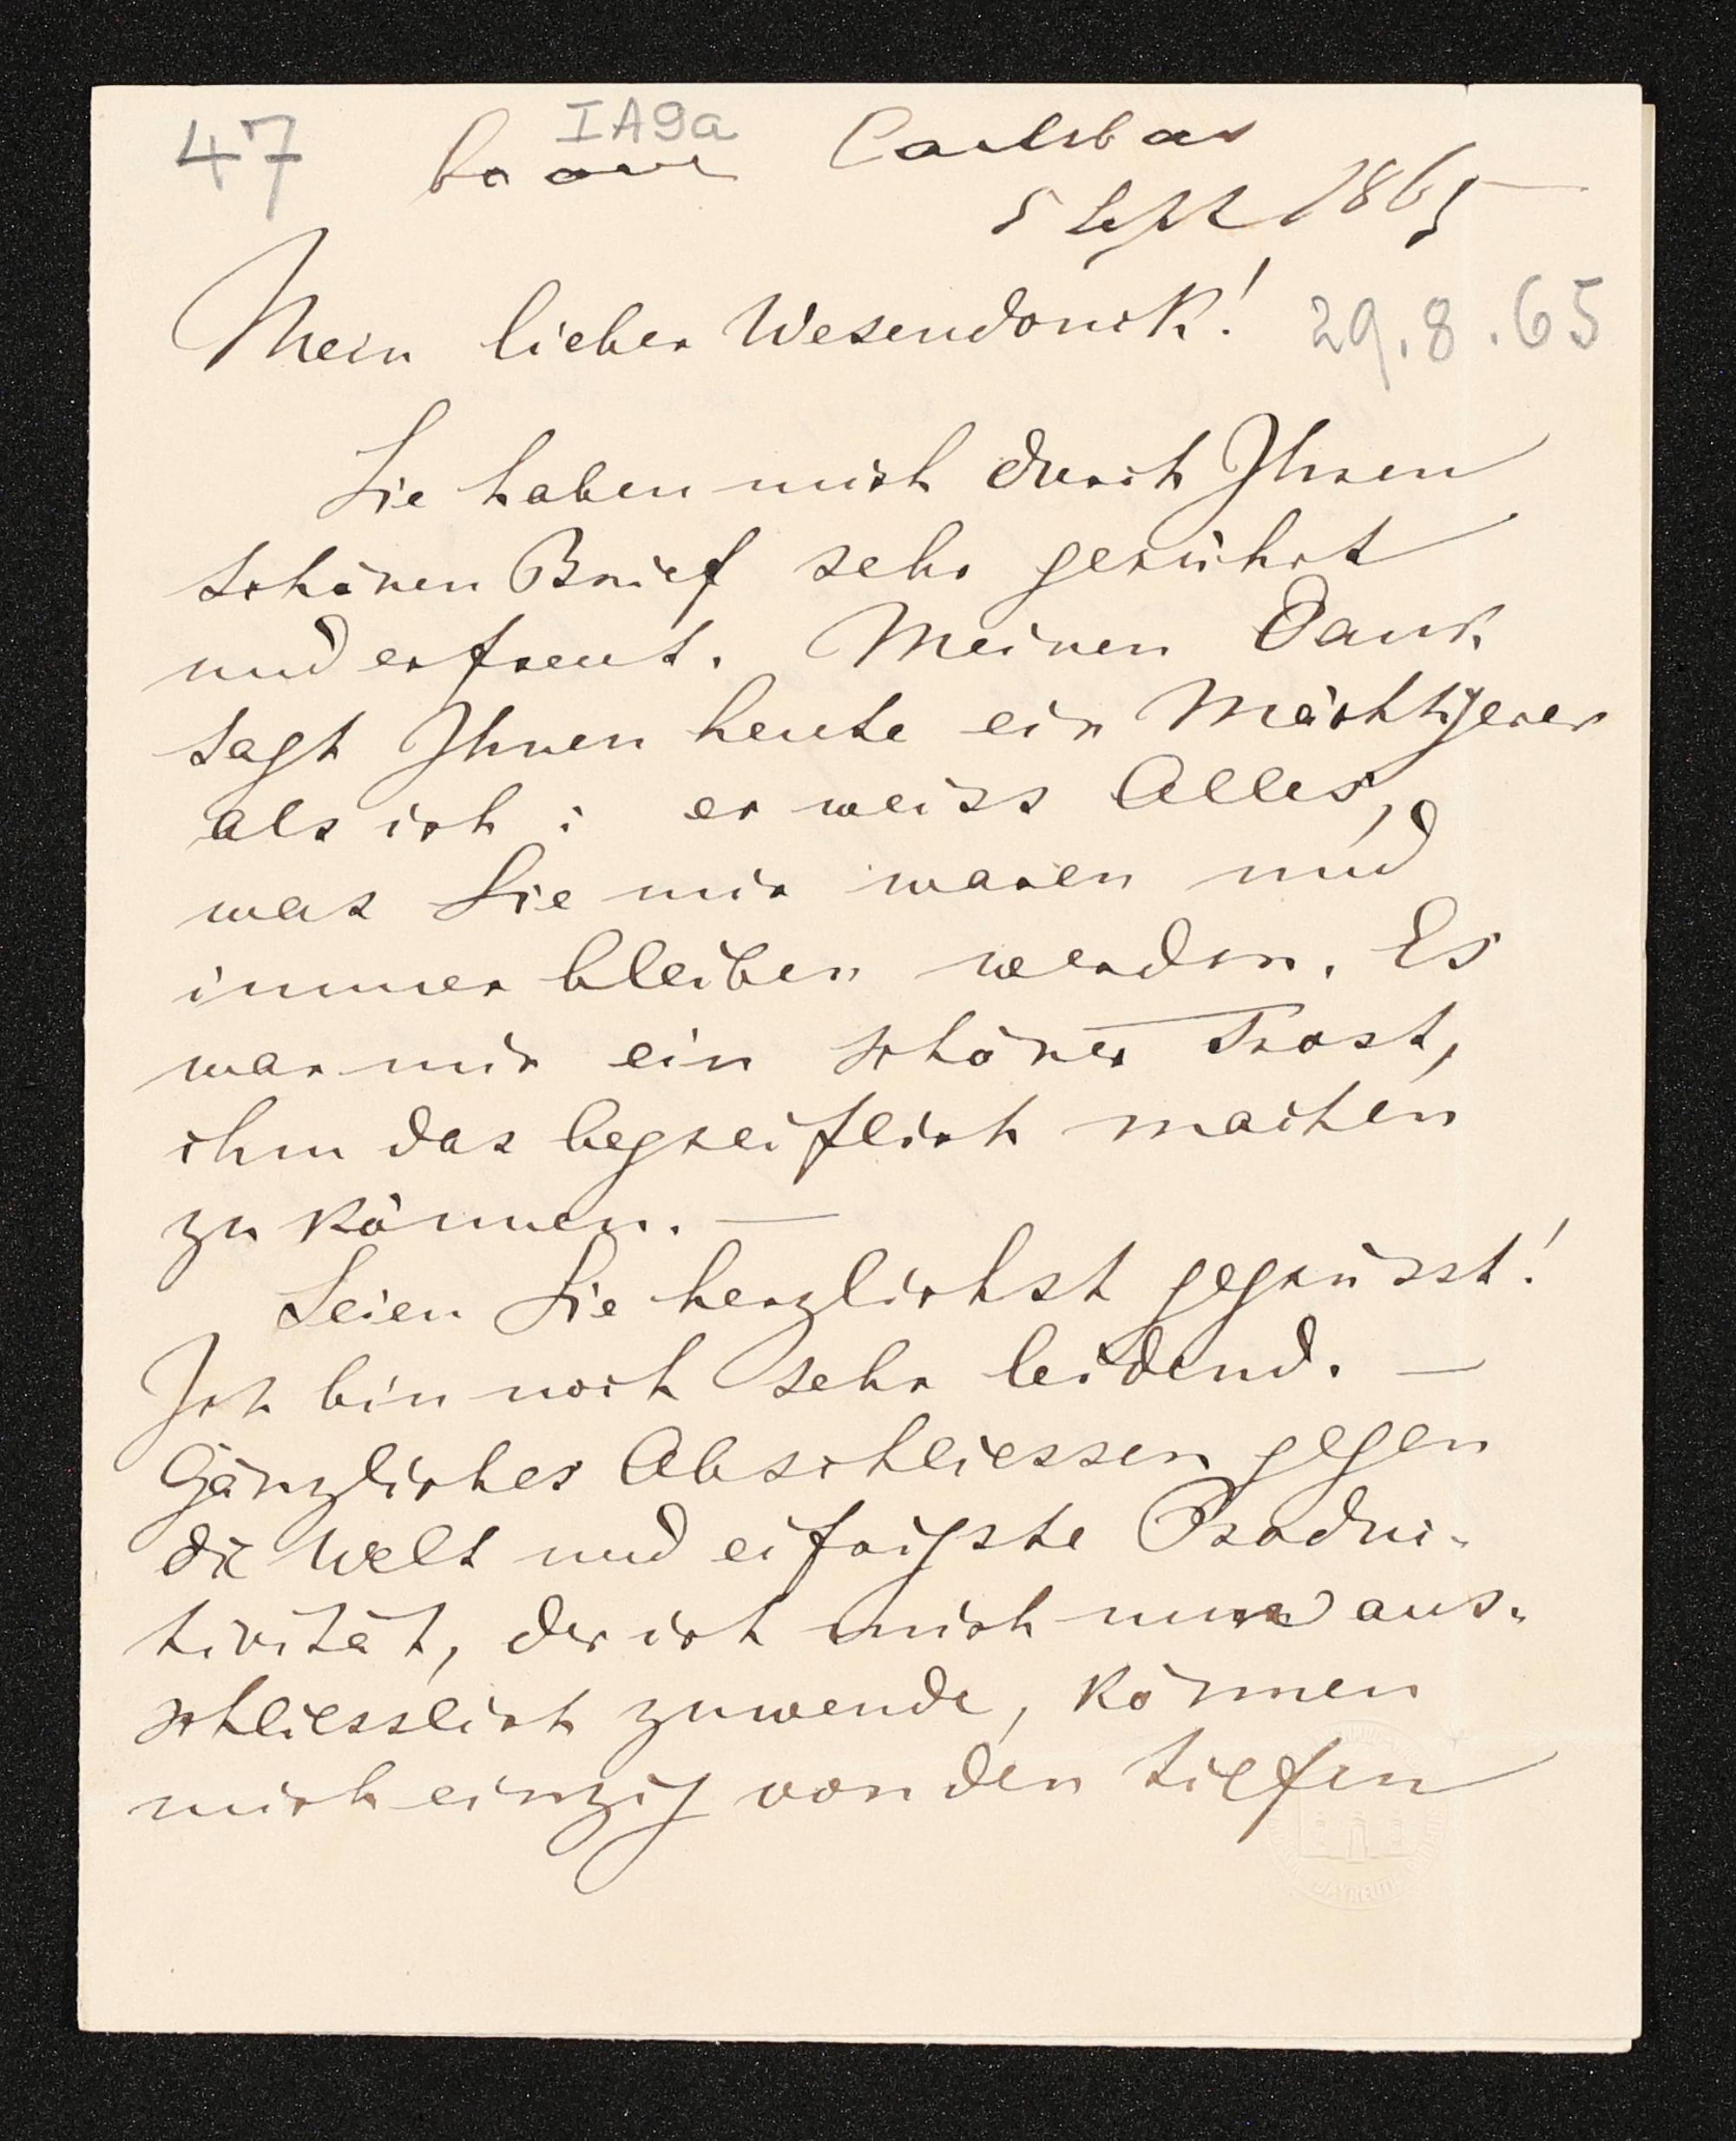 47 IA9a Carlsbad
5 Sept 1865
Mein lieber Wesendonck! 29.8.65
Sie haben mich durch Ihren
schönen Brief sehr gerührt
und erfreut. Meinen Dank
sagt Ihnen heute ein Mächtigerer
als ich: er weiss Alles,
was Sie mir waren und
immer bleiben werden. Es
war mir ein schöner Trost,
ihm das begreiflich machen
zu können. —
Seien Sie herzlichst gegrüsst!
Ich bin noch sehr leidend. —
Gänzliches Abschliessen gegen
die Welt und eifrigste Produc-
tivität, der ich mich nun aus-
schliesslich zuwende, können
mich einzig von den tiefen